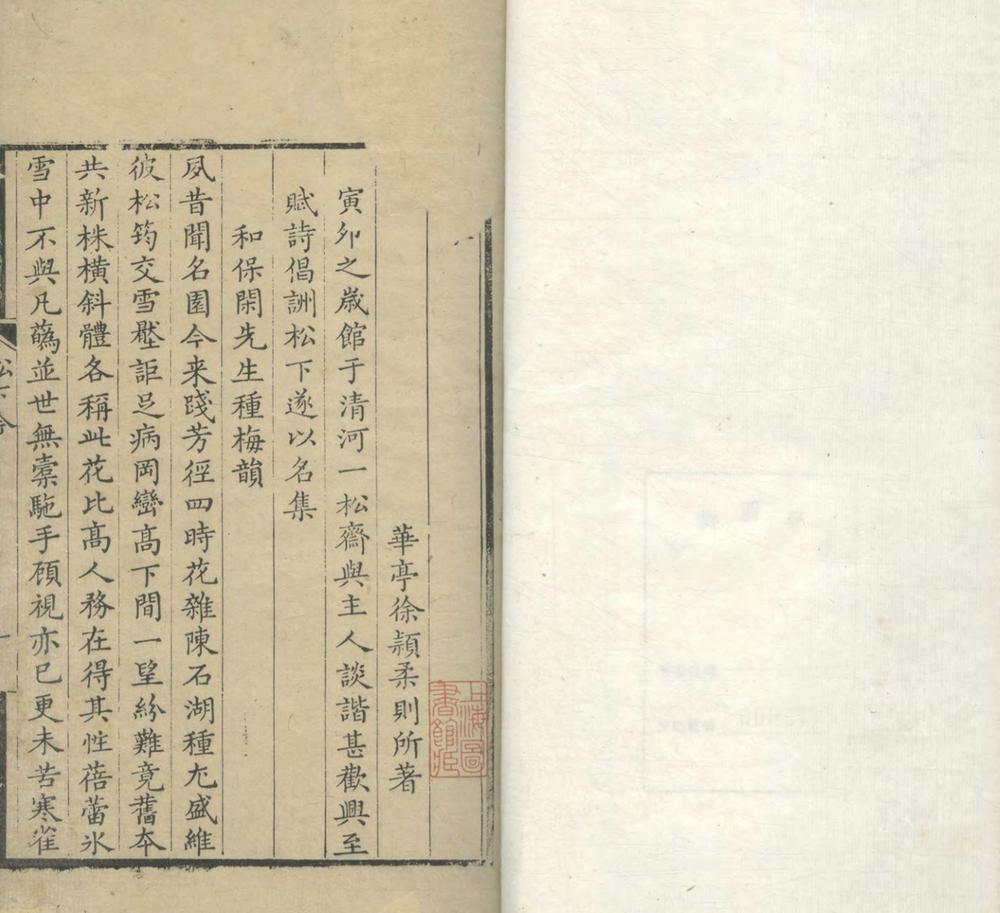 華亭徐潁柔則所著
寅夘之歳館于清河一松齋與主人談諧甚歡興至
賦詩倡詶松下遂以名集
和保閑先生種梅韻
夙昔聞名園今来踐芳徑四時花雜陳石湖種尢盛維
彼松筠交雪壓詎𠯁病岡巒髙下間一朢紛難竟舊夲
共新株横斜體各稱此花比髙人務在得其性蓓蕾氷
雪中不與凡蘤並世無橐駞手頋視亦已更未苦寒雀
松下
一
上海圖書館藏